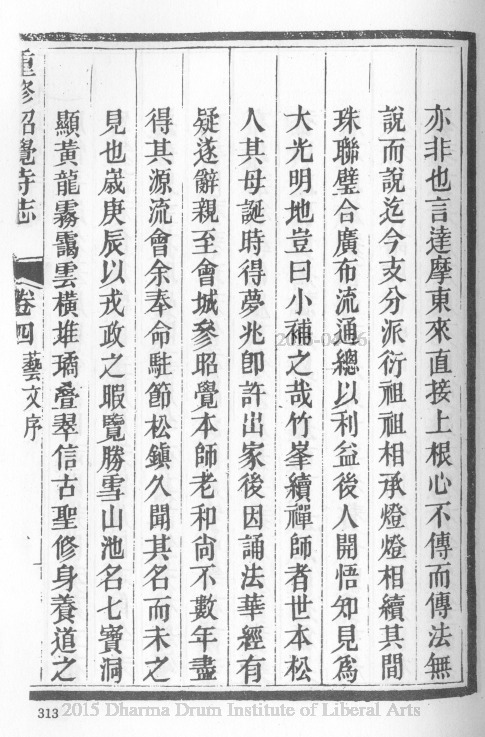 亦非也言達摩東來直接上根心不傳而傳法無
說而說迄今支分派衍祖祖相承燈燈相續其間
珠聯璧合廣布流通總以利益後人開悟知見爲
大光明地豈曰小補之哉竹峯續禪師者世本松
人其母誕時得夢兆卽許出家後因誦法華經有
疑遂辭親至會城參昭覺本師老和尙不數年盡
得其源流會余奉命駐節松鎮久聞其名而未之
見也歲庚辰以戎政之暇覽勝雪山池名七寶洞
顯黃龍霧靄雲橫堆璚疊翠信古聖修身養道之
重修昭覺寺志 卷四 藝文序
313
2015 Dharma Drum Institute of Liberal Arts